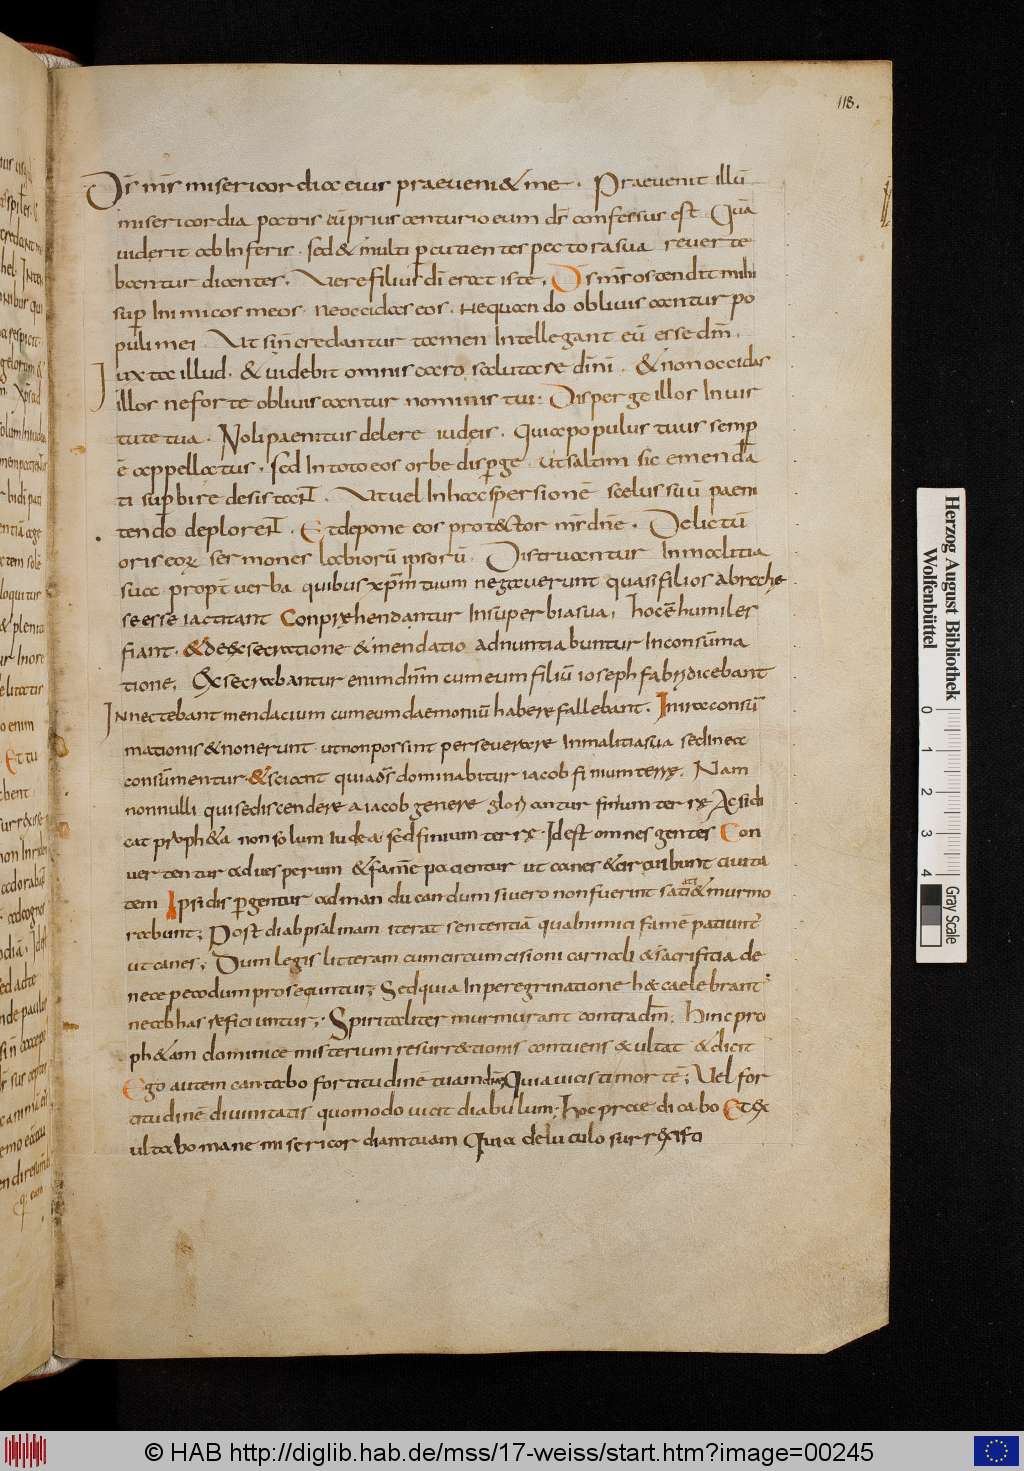 118.
Ds̄ m̄s misericordia eius praeueni& me. Praeuenit illū
misericordia patris cū prius centurio eum dī confessus est. Quā
uiderit ab Inferis. sed& multi ꝑcutientes pectora sua reuerte
bantur dicentes. Uere filius dī erat iste. Ds̄ m̄s ostendit mihi
suꝑ Inimicos meos. Ne occidas eos. Nequando obliuiscantur po
puli mei. Ut si n̄ credantur tamen Intellegant eū esse dm̄.
Iuxta illud. & uidebit omnis caro salutare dīni. & non occidas
illos ne forte obliuiscantur nominis tui: Disperge illos In uir
tute tua. Noli paenitus delere iudeis. Quia populus tuus semꝑ
ē appellatus. sed In toto eos orbe disꝑge. ut saltim sic emenda
ti suꝑbire desistant. Ut uel In hac sꝑersionē scelus suū paeni
tendo deplorent. Et depone eos protector m̄s dn̄e. Delictū
oris eoꝝ sermones labiorū ipsorū. Distruantur In malitia
sua propt̄ uerba quibus xp̄m tuum negauerunt quasi filios abrahę
se esse iactitant Conprehendantur In superbia sua, hoc ē humiles
fiant. & de exsecratione & mendatio adnuntiabuntur In consūma
tione. Exsecrabantur enim dn̄m cum eum filiū ioseph fabri dicebant
Innectebant mendacium cum eum daemoniū habere fallebant. In ira consū
mationis & non erunt ut non possint perseuerare In malitia sua sed in ea
consūmentur. & sciant quia ds̄ dominabitur iacob finium terrę. Nam
nonnulli qui se discendere a iacob genere gloriantur finium terrę Ac si di
cat proph&a non solum Iudea sed finium terrę. Id est omnes gentes Con
uertentur ad uesperum & famē patientur ut canes & circuibunt ciuita
tem Ipsi disꝑgentur ad manducandum si uero non fuerint satiati & murmu
rabunt; Post diabpsalmam iterat sententiā qua Inimici famē patiunt̄
ut canes; Dum legis litteram cum circumcisioni carnali & sacrificia de
nece pecodum prosequntur; Sed quia In peregrinatione hęc caelebrant
nec ab has reficiuntur; Spiritaliter murmurant contra dm̄. hinc pro
ph&am dominice misterium resurr&ionis contuens exultat & dicit
Ego autem cantabo fortitudinē tuam dn̄e Quia uicisti mortē; Uel for
titudinē diuinitatis quomodo uicit diabulum; hoc praedicabo Et ex
ultabo mane misericordiam tuam Quia deluculo surrexisti
Herzog August Bibliothek
Wolfenbüttel
0 1 2 3 4
Gray Scale
© HAB http://diglib.hab.de/mss/17-weiss/start.htm?image=00245